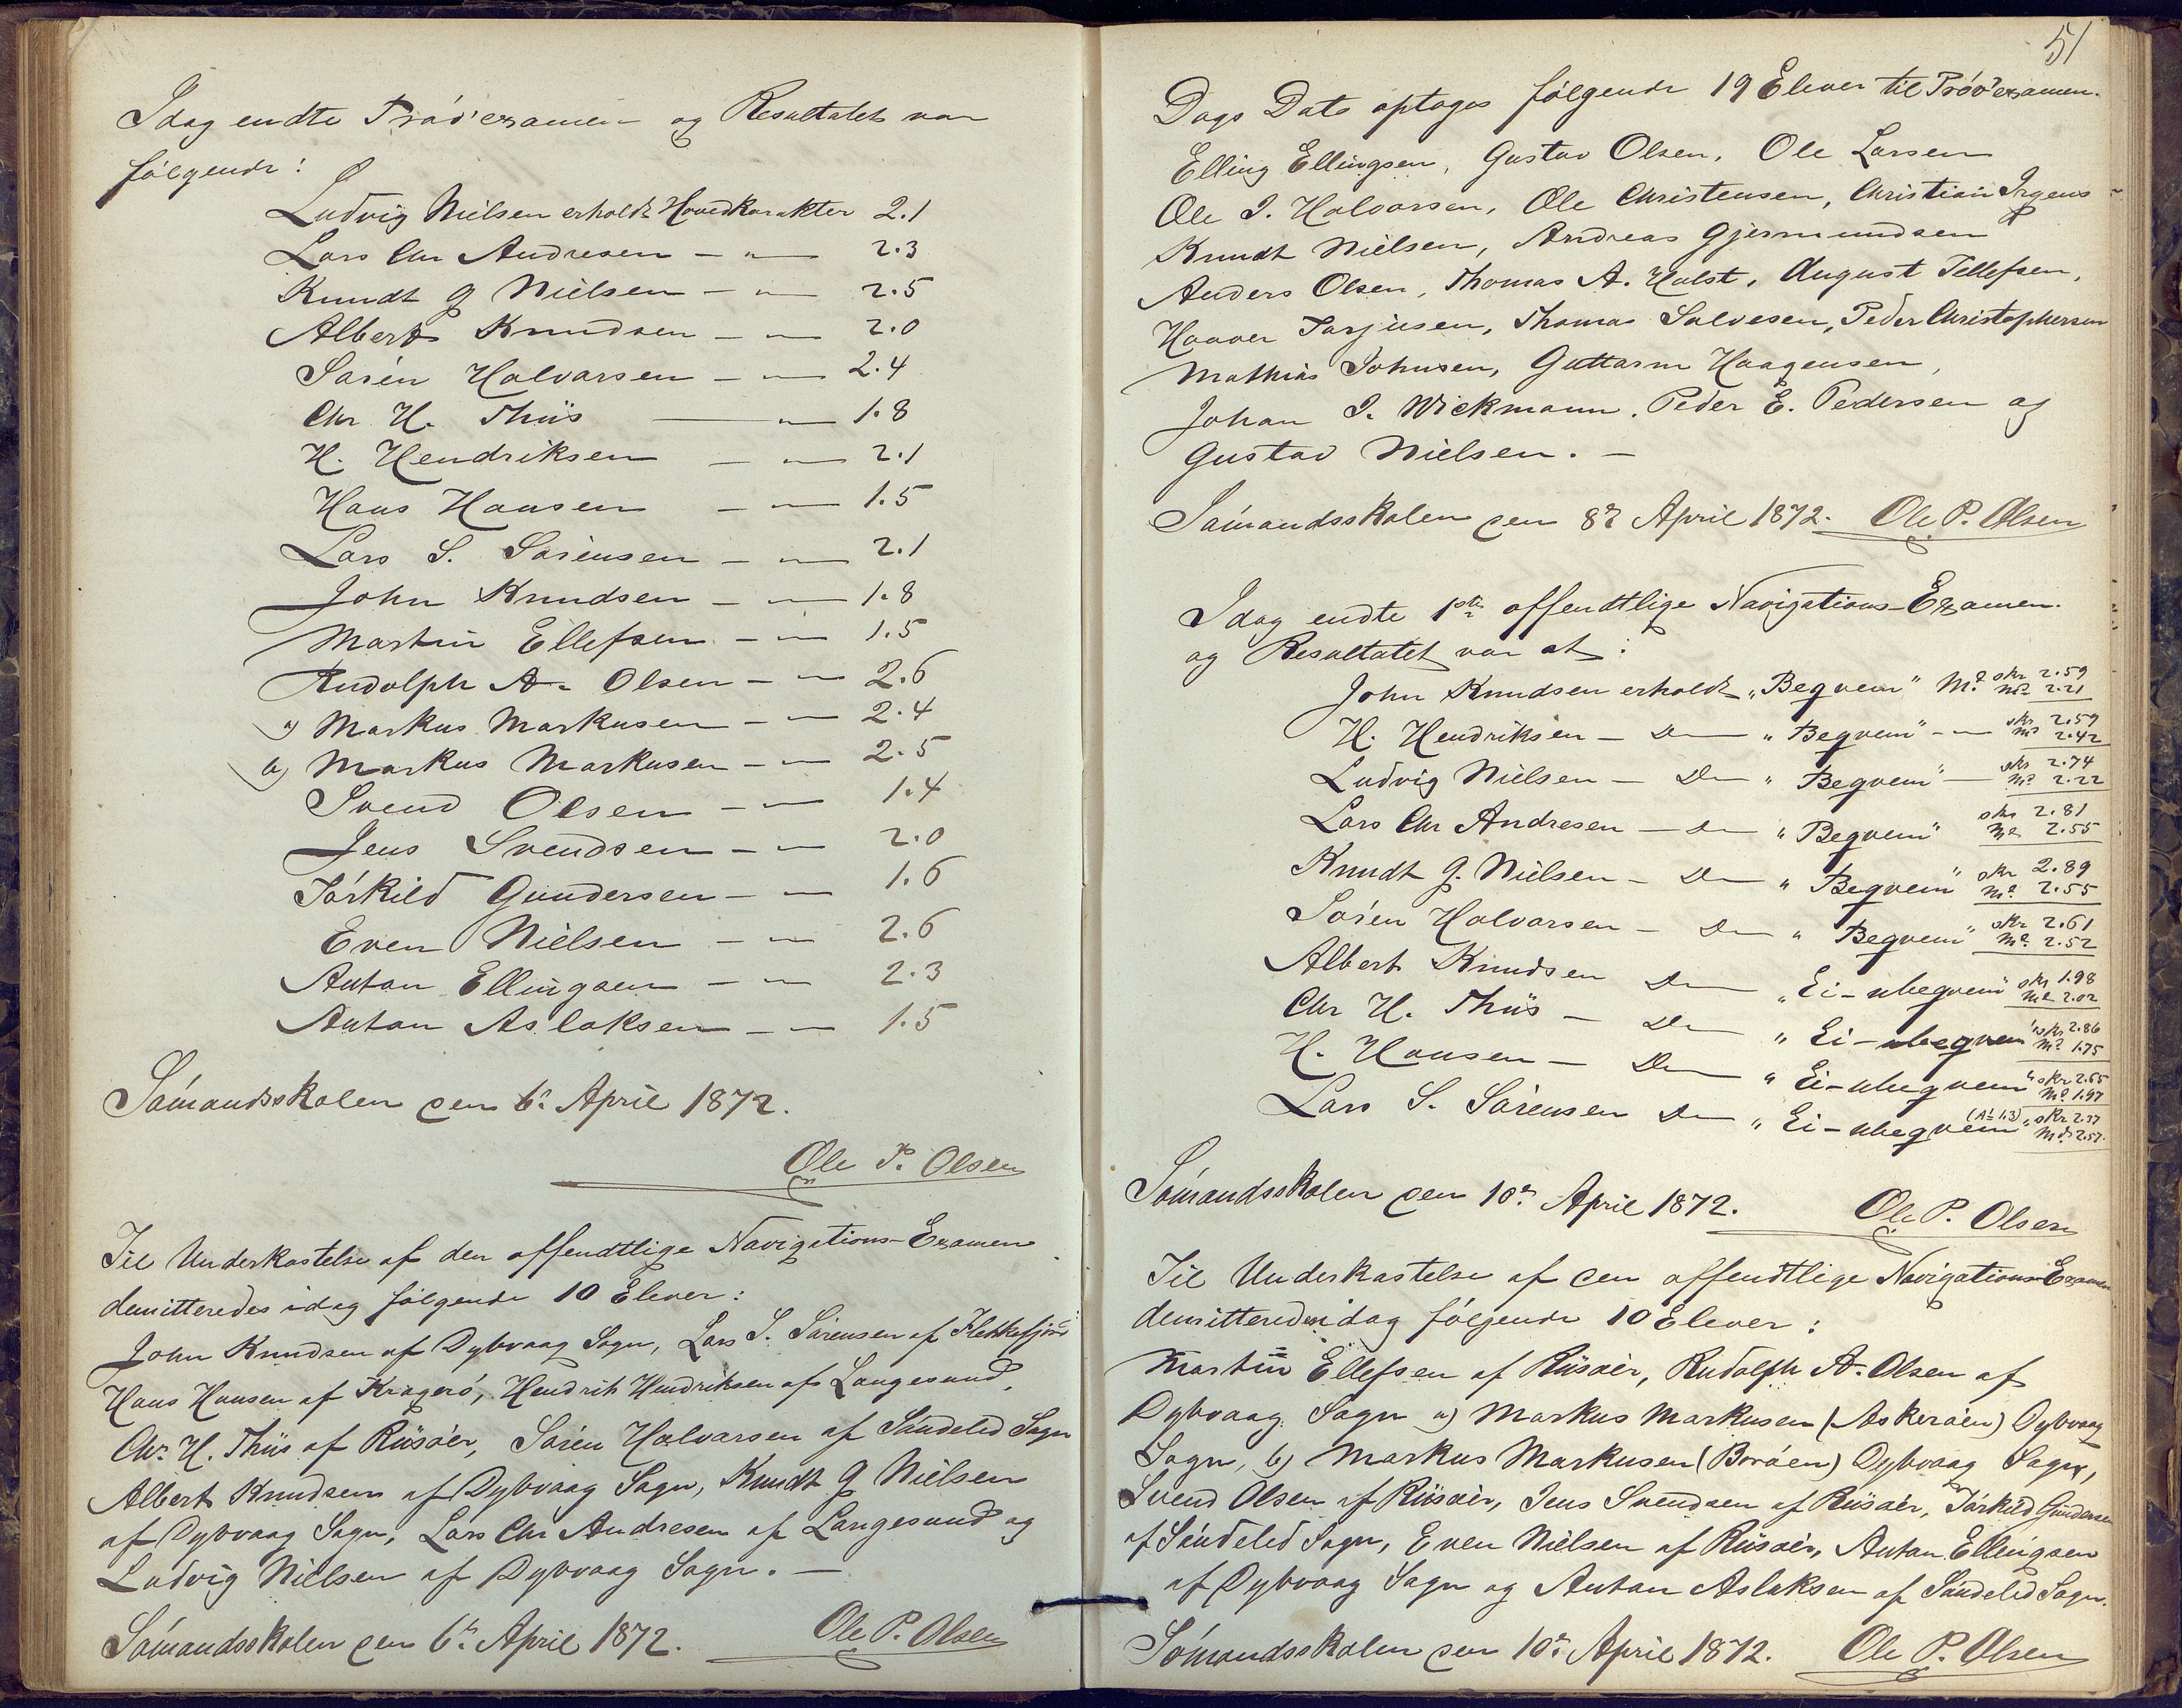 Idag endte Prøveexamen og Resultatet var
følgende:
Ludvig Nielsen erholdt Hovedkarakter 2.1
Lars Chr Andresen — " — 2.3
Knudt G Nielsen — " — 2.5
Albert Knudsen — " — 2.0
Søren Halvorsen — " — 2.4
Chr H. Thiis — " — 1.8
H. Hendriksen — " — 2.1
Hans Hansen — " — 1.5
Lars S. Sørensen — " — 2.1
John Knudsen — " — 1.8
Martin Ellefsen — " — 1.5
Rudolph A. Olsen — " — 2.6
a) Markus Markusen — " — 2.4
b) Markus Markusen — " — 2.5
Svend Olsen — " — 1.4
Jens Svendsen — " — 2.0
Törkild Gundersen — " — 1.6
Even Nielsen — " — 2.6
Anton Ellingsen — " — 2.3
Anton Aslaksen — " — 1.5
Sømandsskolen den 6te April 1872.
Ole P. Olsen
Til Underkastelse af den offendtlige Navigations-Examen
demitteredes idag følgende 10 Elever:
John Knudsen af Dybvaag Sogn, Lars S. Sørensen af Flekkefjord
Hans Hansen af Kragerø, Hendrik Hendriksen af Langesund,
Chr. H. Thiis af Riisøer, Søren Halvorsen af Søndeled Sogn
Albert Knudsen af Dybvaag Sogn, Knudt G Nielsen
af Dybvaag Sogn, Lars Chr Andresen af Langesund og
Ludvig Nielsen af Dybvaag Sogn. —
Sømandsskolen den 6te April 1872. Ole P. Olsen
51
Dags Dato optoges følgende 19 Elever til Prøveexamen.
Elling Ellingsen, Gustav Olsen, Ole Larsen
Ole I. Halvorsen, Ole Christensen, Christian Irgens
Knudt Nielsen, Andreas Gjermundsen
Anders Olsen, Thomas A. Holst, August Tellefsen,
Haaver Tarjusen, Thomas Salvesen, Peder Christophersen
Mathias Johnsen, Guttorm Haagensen,
Johan I. Wickmann, Peder E. Pedersen og
Gustav Nielsen. —
Sømandsskolen den 8de April 1872. Ole P. Olsen
Idag endte 1ste offendtlige Navigations-Examen.
og Resultatet var at:
John Knudsen erholdt „Beqvem" Md skr 2.59 md 2.21
H. Hendriksen — Do — „Beqvem" — " — skr 2.59 md 2.42
Ludvig Nielsen — Do — „Beqvem" — skr 2.74 md 2.22
Lars Chr Andresen — Do — „Beqvem" skr 2.81 md 2.55
Knudt G. Nielsen — Do — „Beqvem" skr 2.89 md 2.55
Søren Halvorsen — Do — „Beqvem" skr 2.61 md 2.52
Albert Knudsen Do — „Ei-ubeqvem" skr 1.98 md 2.02
Chr H. Thiis — Do — „Ei-ubeqvem" skr 2.86 md 1.75
H. Hansen — Do — „Ei-ubeqvem" skr 2.65 md 1.97
Lars S. Sørensen Do — „Ei-ubeqvem" skr 2.37 md 2.57.
Sømandsskolen den 10de April 1872. Ole P. Olsen
Til Underkastelse af den offendtlige Navigations-Examen
demitteredes idag følgende 10 Elever:
Martin Ellefsen af Riisøer, Rudolph A. Olsen af
Dybvaag Sogn a) Markus Markusen (Askerøen) Dybvaag
Sogn, b) Markus Markusen (Borøen) Dybvaag Sogn,
Svend Olsen af Riisøer, Jens Svendsen af Riisøer, Törkild Gundersen
af Søndeled Sogn, Even Nielsen af Riisøer, Anton Ellingsen
af Dybvaag Sogn og Anton Aslaksen af Søndeled Sogn.
Sømandsskolen den 10de April 1872. Ole P. Olsen